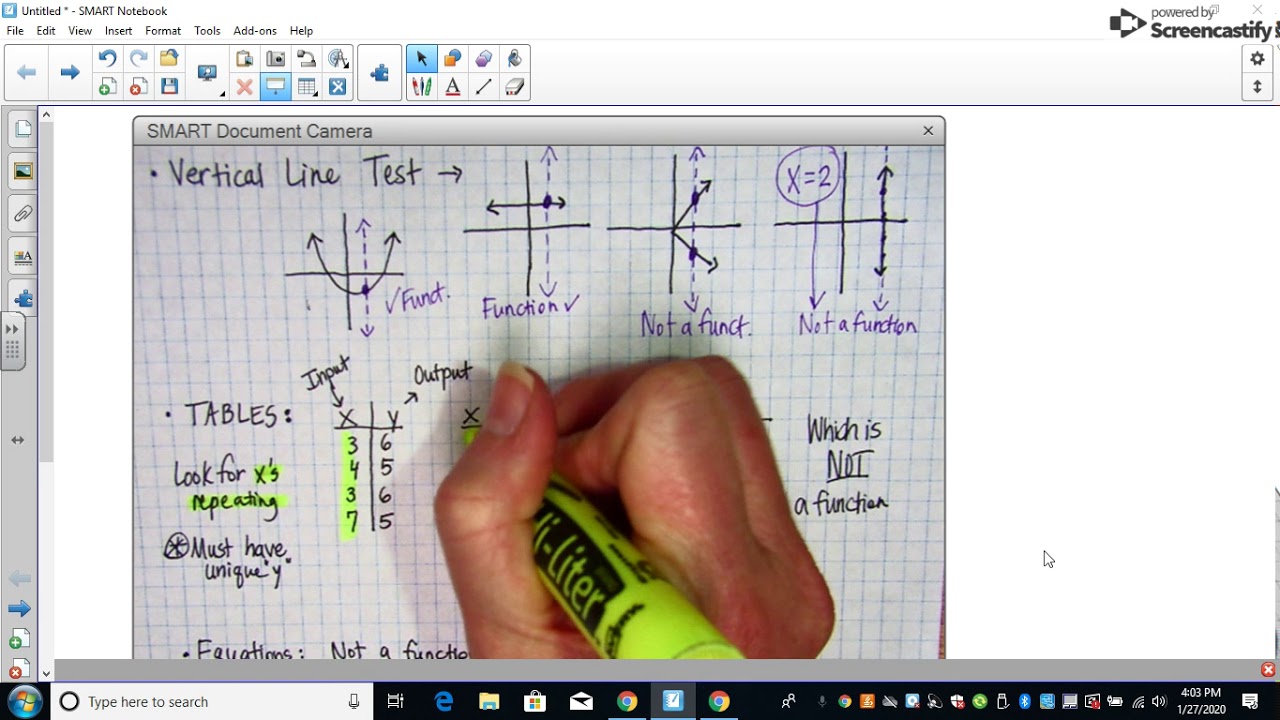 Untitled * - SMART Notebook
powered by
Screencastify
File Edit View Insert Format Tools Add-ons Help
SMART Document Camera
• Vertical Line Test →
X=2
✓Funct.
Function ✓
Not a funct.
Not a function
Input
Output
• TABLES:
X Y
3 6
4 5
3 6
7 5
X
Look for x's
repeating
Must have
unique "y"
Which is
NOT
a function
• Equations: Not a functio
Hi-Liter
Type here to search
4:03 PM
1/27/2020